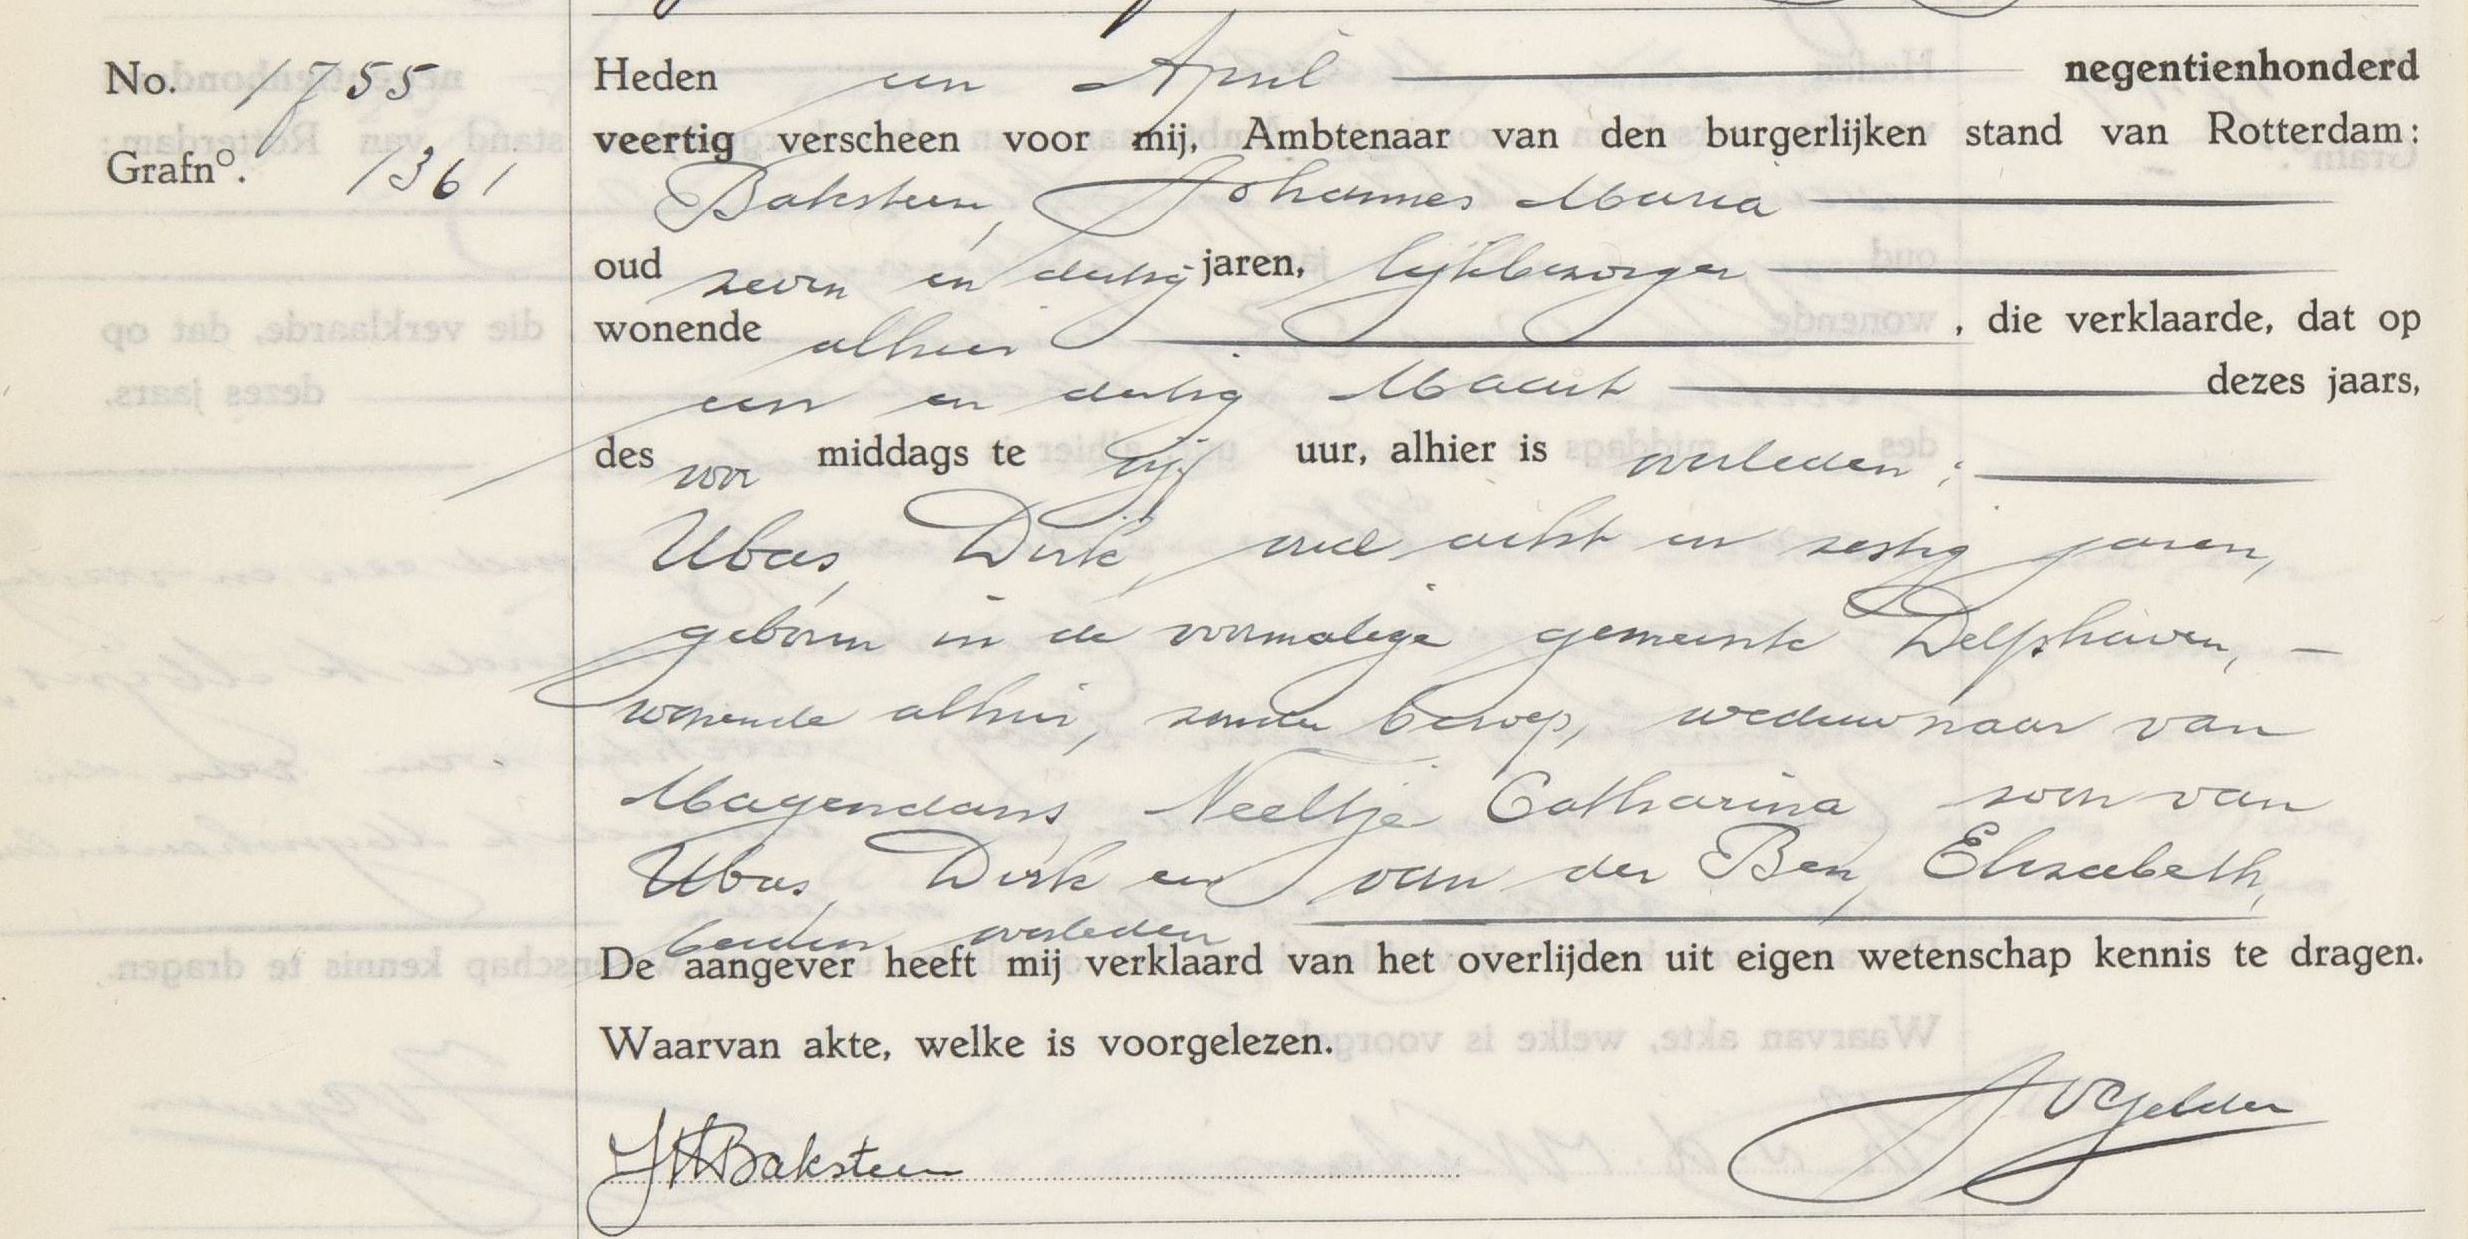 No. 1755
Grafnº. 1361
Heden een April negentienhonderd
veertig verscheen voor mij, Ambtenaar van den burgerlijken stand van Rotterdam:
Baksteen, Johannes Maria
oud zeven en dertig jaren, lijkbezorger
wonende alhier, die verklaarde, dat op
een en dertig Maart dezes jaars,
des voor middags te vijf uur, alhier is overleden:
Ubas, Dirk, oud acht en zestig jaren,
geboren in de voormalige gemeente Delfshaven, -
wonende alhier, zonder beroep, weduwnaar van
Magendans Neeltje Catharina zoon van
Ubas, Dirk en van der Ben, Elizabeth,
beiden overleden
De aangever heeft mij verklaard van het overlijden uit eigen wetenschap kennis te dragen.
Waarvan akte, welke is voorgelezen.
JMBaksteen JvGelder